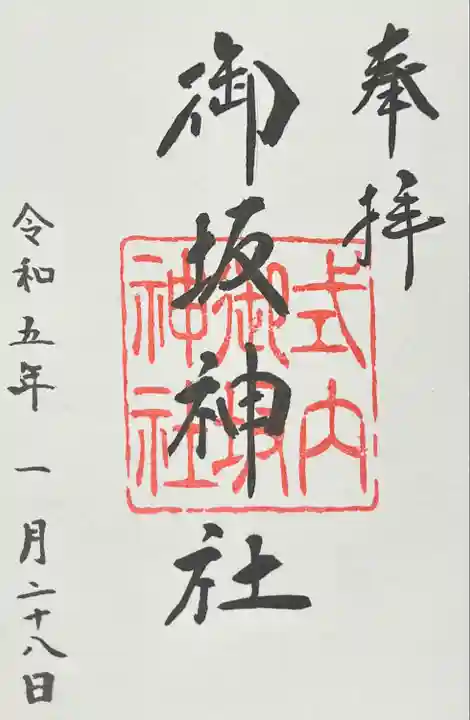 奉拝
御坂神社
式内
御坂
神社
令和五年 一月二十八日